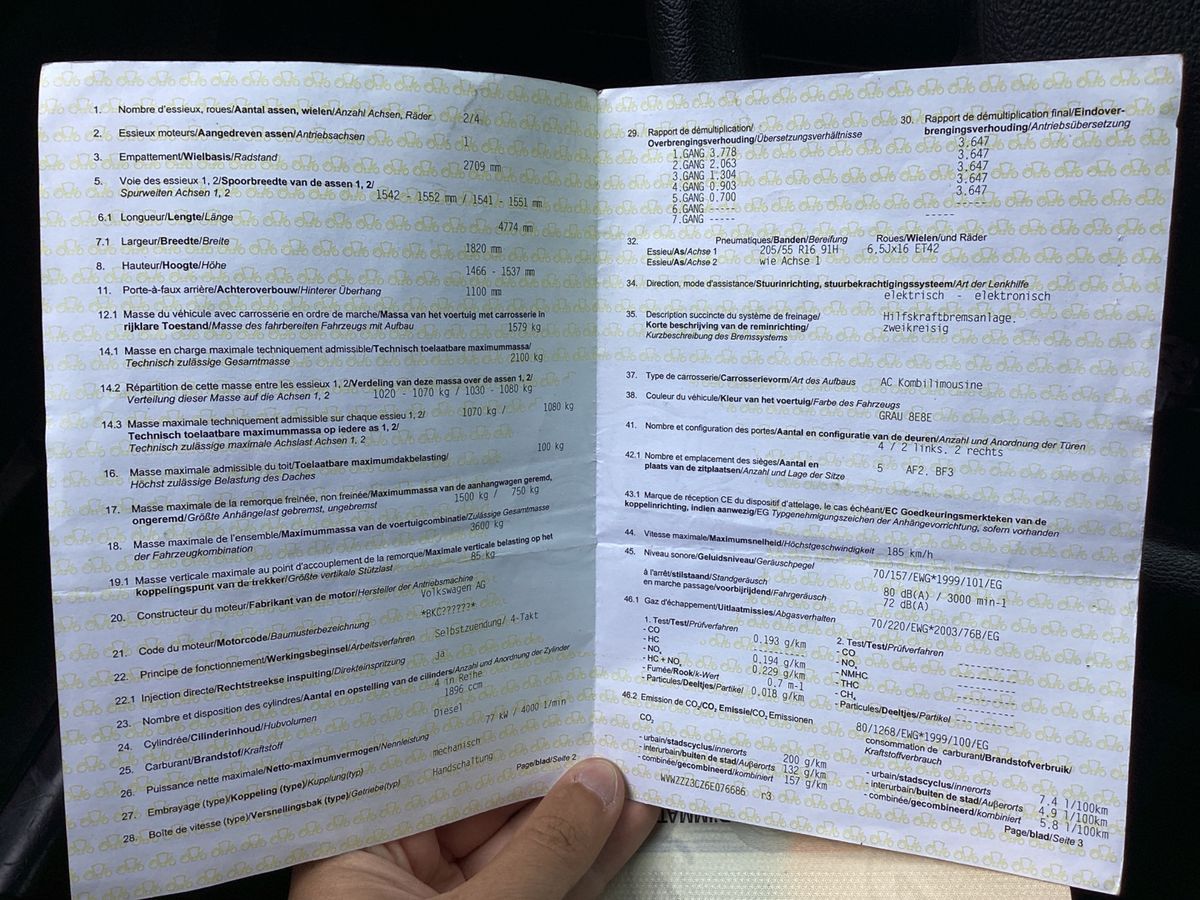 1. Nombre d'essieux, roues/Aantal assen, wielen/Anzahl Achsen, Räder 2/4
2. Essieux moteurs/Aangedreven assen/Antriebsachsen 1
3. Empattement/Wielbasis/Radstand 2709 mm
5. Voie des essieux 1, 2/Spoorbreedte van de assen 1, 2/
Spurweiten Achsen 1, 2 1542 - 1552 mm / 1541 - 1551 mm
6.1 Longueur/Lengte/Länge 4774 mm
7.1 Largeur/Breedte/Breite 1820 mm
8. Hauteur/Hoogte/Höhe 1466 - 1537 mm
11. Porte-à-faux arrière/Achteroverbouw/Hinterer Überhang 1100 mm
12.1 Masse du véhicule avec carrosserie en ordre de marche/Massa van het voertuig met carrosserie in
rijklare Toestand/Masse des fahrbereiten Fahrzeugs mit Aufbau 1579 kg
14.1 Masse en charge maximale techniquement admissible/Technisch toelaatbare maximummassa/
Technisch zulässige Gesamtmasse 2100 kg
14.2 Répartition de cette masse entre les essieux 1, 2/Verdeling van deze massa over de assen 1, 2/
Verteilung dieser Masse auf die Achsen 1, 2 1020 - 1070 kg / 1030 - 1080 kg
14.3 Masse maximale techniquement admissible sur chaque essieu 1, 2/ 1070 kg / 1080 kg
Technisch toelaatbare maximummassa op iedere as 1, 2/
Technisch zulässige maximale Achslast Achsen 1, 2
16. Masse maximale admissible du toit/Toelaatbare maximumdakbelasting/ 100 kg
Höchst zulässige Belastung des Daches
17. Masse maximale de la remorque freinée, non freinée/Maximummassa van de aanhangwagen geremd,
ongeremd/Größte Anhängelast gebremst, ungebremst 1500 kg / 750 kg
18. Masse maximale de l'ensemble/Maximummassa van de voertuigcombinatie/Zulässige Gesamtmasse
der Fahrzeugkombination 3600 kg
19.1 Masse verticale maximale au point d'accouplement de la remorque/Maximale verticale belasting op het
koppelingspunt van de trekker/Größte vertikale Stützlast 85 kg
20. Constructeur du moteur/Fabrikant van de motor/Hersteller der Antriebsmachine
Volkswagen AG
21. Code du moteur/Motorcode/Baumusterbezeichnung *BKC??????*
22. Principe de fonctionnement/Werkingsbeginsel/Arbeitsverfahren Selbstzuendung/ 4-Takt
22.1 Injection directe/Rechtstreekse inspuiting/Direkteinspritzung ja
23. Nombre et disposition des cylindres/Aantal en opstelling van de cilinders/Anzahl und Anordnung der Zylinder
4 in Reihe
24. Cylindrée/Cilinderinhoud/Hubvolumen 1896 ccm
25. Carburant/Brandstof/Kraftstoff Diesel
26. Puissance nette maximale/Netto-maximumvermogen/Nennleistung 77 kW / 4000 1/min
27. Embrayage (type)/Koppeling (type)/Kupplung(typ) mechanisch
28. Boîte de vitesse (type)/Versnellingsbak (type)/Getriebe(typ) Handschaltung
Page/blad/Seite 2
29. Rapport de démultiplication/
Overbrengingsverhouding/Übersetzungsverhältnisse
1.GANG 3.778
2.GANG 2.063
3.GANG 1.304
4.GANG 0.903
5.GANG 0.700
6.GANG -----
7.GANG -----
30. Rapport de démultiplication final/Eindover-
brengingsverhouding/Antriebsübersetzung
3.647
3.647
3.647
3.647
3.647
-----
-----
32. Pneumatiques/Banden/Bereifung Roues/Wielen/und Räder
Essieu/As/Achse 1 205/55 R16 91H 6,5Jx16 ET42
Essieu/As/Achse 2 wie Achse 1
34. Direction, mode d'assistance/Stuurinrichting, stuurbekrachtigingssysteem/Art der Lenkhilfe
elektrisch - elektronisch
35. Description succincte du système de freinage/ Hilfskraftbremsanlage.
Korte beschrijving van de reminrichting/ zweikreisig
Kurzbeschreibung des Bremssystems
37. Type de carrosserie/Carrosserievorm/Art des Aufbaus AC Kombilimousine
38. Couleur du véhicule/Kleur van het voertuig/Farbe des Fahrzeugs
GRAU 8E8E
41. Nombre et configuration des portes/Aantal en configuratie van de deuren/Anzahl und Anordnung der Türen
4 / 2 links. 2 rechts
42.1 Nombre et emplacement des sièges/Aantal en
plaats van de zitplaatsen/Anzahl und Lage der Sitze 5 AF2. BF3
43.1 Marque de réception CE du dispositif d'attelage, le cas échéant/EC Goedkeuringsmerkteken van de
koppelinrichting, indien aanwezig/EG Typgenehmigungszeichen der Anhängevorrichtung, sofern vorhanden
44. Vitesse maximale/Maximumsnelheid/Höchstgeschwindigkeit 185 km/h
45. Niveau sonore/Geluidsniveau/Geräuschpegel 70/157/EWG*1999/101/EG
à l'arrêt/stilstaand/Standgeräusch 80 dB(A) / 3000 min-1
en marche passage/voorbijrijdend/Fahrgeräusch 72 dB(A)
46.1 Gaz d'échappement/Uitlaatmissies/Abgasverhalten 70/220/EWG*2003/76B/EG
1. Test/Test/Prüfverfahren
- CO 0,193 g/km
- HC -------
- NOx 0,194 g/km
- HC + NOx 0,229 g/km
- Fumée/Rook/k-Wert 0.7 m-1
- Particules/Deeltjes/Partikel 0,018 g/km
2. Test/Test/Prüfverfahren
- CO -------
- NOx -------
- NMHC -------
- THC -------
- CH4 -------
- Particules/Deeltjes/Partikel -------
46.2 Emission de CO2/CO2 Emissie/CO2 Emissionen 80/1268/EWG*1999/100/EG
CO2
- urbain/stadscyclus/innerorts 200 g/km
- interurbain/buiten de stad/Außerorts 132 g/km
- combinée/gecombineerd/kombiniert 157 g/km
consommation de carburant/Brandstofverbruik/
Kraftstoffverbrauch
- urbain/stadscyclus/innerorts 7.4 l/100km
- interurbain/buiten de stad/Außerorts 4.9 l/100km
- combinée/gecombineerd/kombiniert 5.8 l/100km
WVWZZZ3CZ6E076686 r3
Page/blad/Seite 3